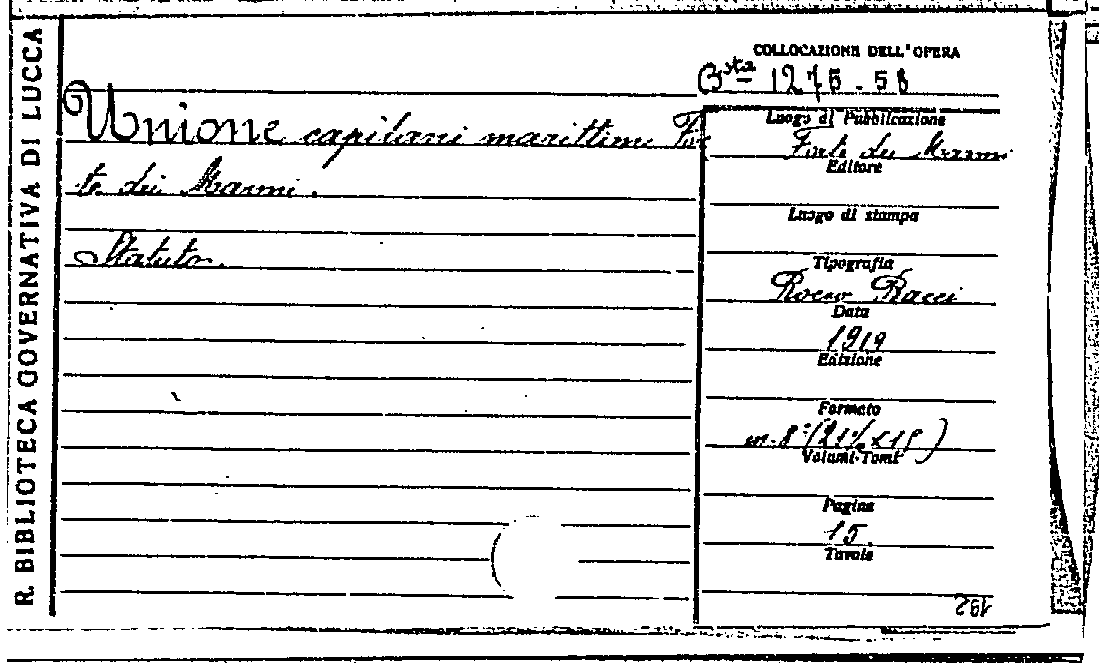 R. BIBLIOTECA GOVERNATIVA DI LUCCA
COLLOCAZIONE DELL'OPERA
Bsta 1275.58
Unione capitani marittimi For
te dei Marmi.
Statuto.
Luogo di Pubblicazione
Forte dei Marmi
Editore
Luogo di stampa
Tipografia
Rocco Bacci
Data
1919
Edizione
Formato
in-8°(21½×15)
Volumi-Tomi
Pagine
15.
Tavole
192